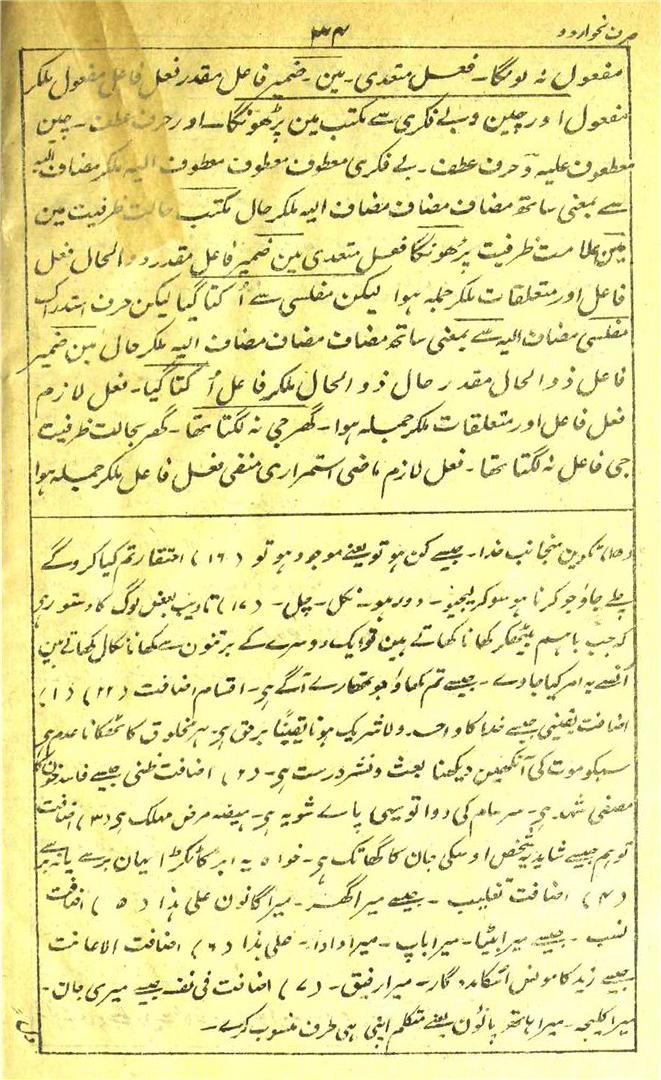 صرف نحو اردو
۳۴
مفعول نہ ہونگا۔ فعل متعدی۔ مین۔ ضمیر فاعل مقدر فعل فاعل مفعول ملکر
مفعول اور چین و بے فکری سے مکتب مین پڑھونگا۔ اور حرف عطف۔ چین
معطوف علیہ و حرف عطف۔ بے فکری معطوف معطوف معطوف الیہ ملکر مضاف الیہ
سے بمعنی ساتھ مضاف مضاف مضاف الیہ ملکر حال مکتب حالت ظرفیت مین
مین علامت ظرفیت پڑھونگا فعل متعدی مین ضمیر فاعل مقدر ذو الحال فعل
فاعل اور متعلقات ملکر جملہ ہوا لیکن مفلسی سے اُکتا گیا لیکن حرف استدراک
مفلسی مضاف الیہ سے بمعنی ساتھ مضاف مضاف مضاف الیہ ملکر حال مین ضمیر
فاعل ذو الحال مقدر حال ذو الحال ملکر فاعل اُکتا گیا۔ فعل لازم
فعل فاعل اور متعلقات ملکر جملہ ہوا۔ گھر جی نہ لگتا تھا۔ گھر بحالت ظرفیت
جی فاعل نہ لگتا تھا۔ فعل لازم ماضی استمراری منفی فعل فاعل ملکر جملہ ہوا
(۱۵) تکوین منجانب خدا۔ جیسے کن ہو تو یعنے موجود ہو تو (۱۶) احتقار تم کیا کروگے
چلے جاؤ جو کرنا ہو سو کریجیو۔ دور ہو۔ نکل۔ چل۔ (۱۷) تادیب بعض لوگ کا دستور ہی
کہ جب باہم بیٹھکر کھانا کھاتے ہین تو ایک دوسرے کے برتنون سے کھانا نکال کھاتے ہین
اُنسے یہ امر کیا جاوے۔ جیسے تم کھاؤ جو تمھارے آگے ہی۔ اقسام اضافت (۲۲) (۱)
اضافت یقینی جیسے خدا کا واحد ولاشریک ہونا یقیناً برحق ہی۔ ہر مخلوق کا ٹھکانا عدم ہی
سبکو موت کی آنکھین دیکھنا بعث و نشر درست ہی۔ (۲) اضافت ظنی جیسے فاسد خون کا
مصفی شہد ہی۔ سرسام کی دوا تو یہی پارے شویہ ہی۔ ہیضہ مرض مہلک ہی (۳) اضافت
توہم جیسے شاید یہ شخص اوسکی جان کا گھاتک ہی۔ خواہ یہ ابر کا ٹکڑا یہان برسے یا نہ برسے
(۴) اضافت تغلیب۔ جیسے میرا گھر۔ میرا گانون علی ہذا (۵) اضافت
نسب۔ جیسے میرا بیٹا۔ میرا باپ۔ میرا دادا۔ علی ہذا (۶) اضافت الاعانت
جیسے زید کا مونس اسکا مددگار۔ میرا رفیق۔ (۷) اضافت فی نفسہ جیسے میری جان۔
میرا کلیجہ۔ میرا ہاتھ پانؤن یعنے متکلم اپنی ہی طرف منسوب کرے۔